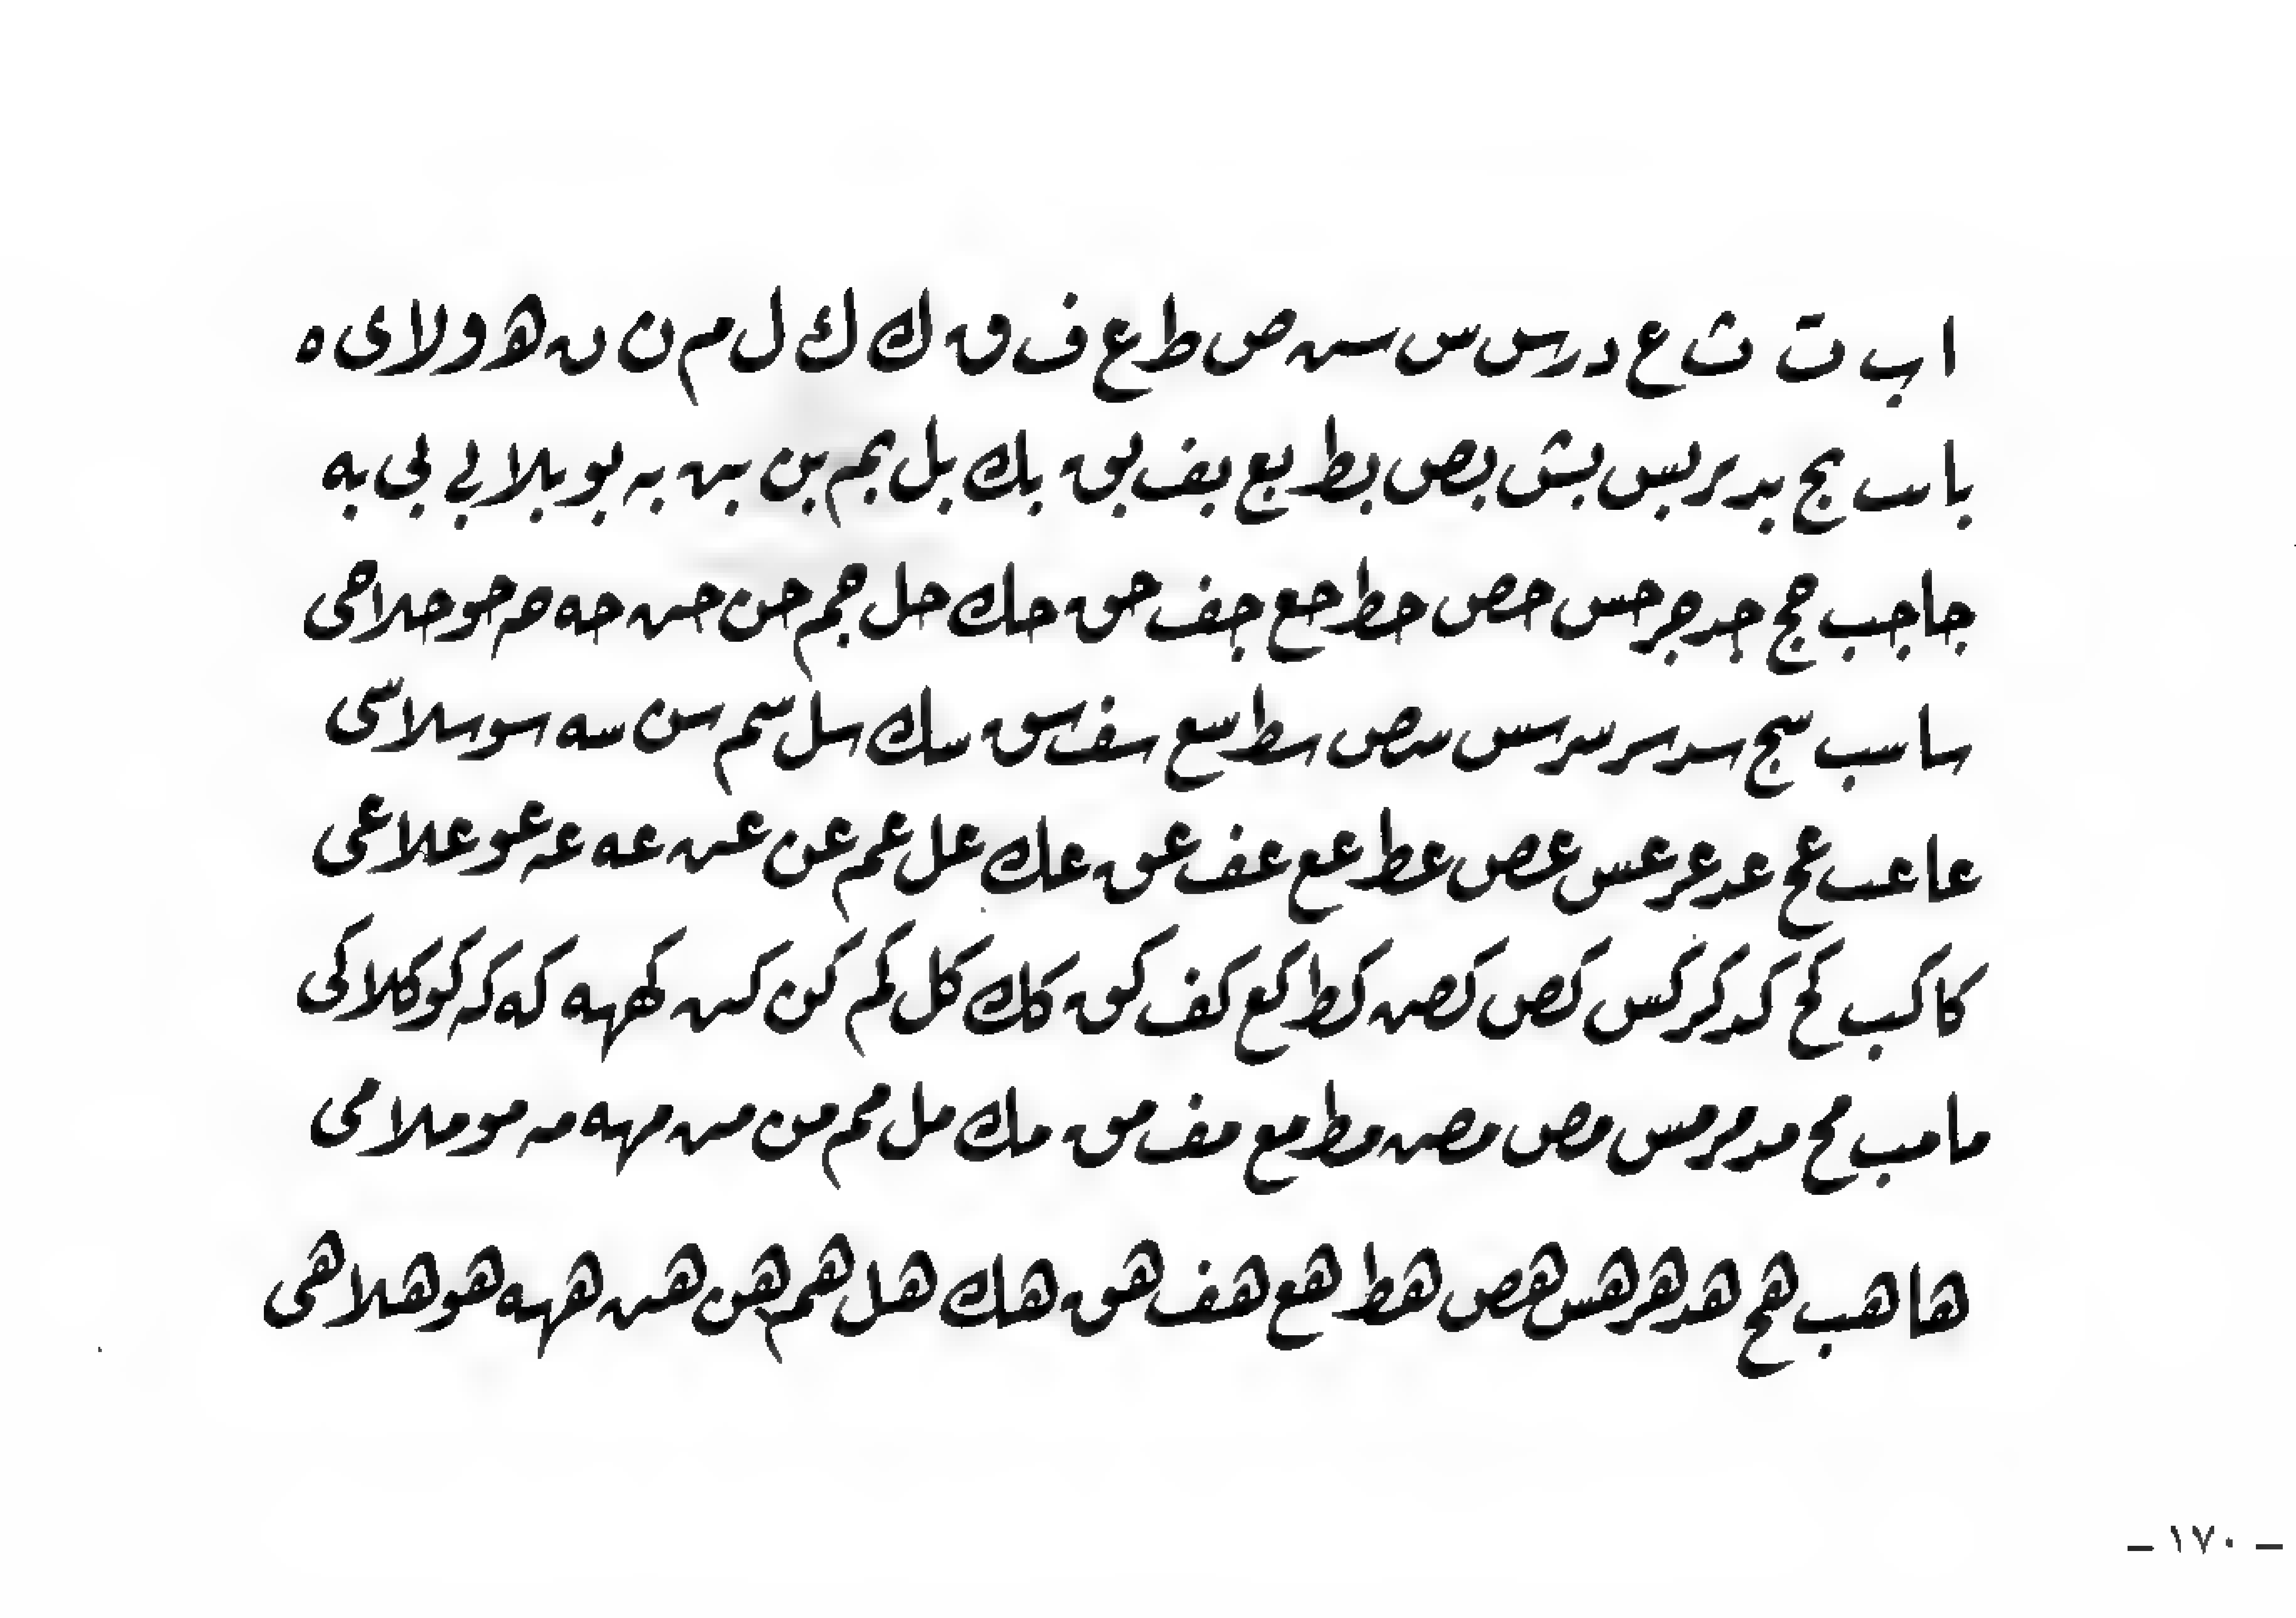 ا ب ت ث ع د ر س س سـ ص ط ع ف ق ك ك ل م ن ن ه و لا ى ه
با ب بج بد بر بس بش بص بط بع بف بق بك بل بم بن بن به بو بلا بي بي به
جا جب جج جد جر حس حص حط حع جف حق حك حل جم حن حن حه حه حو حلا حى
سا سب سج سد سر سر سس سص سط سع سف سق سك سل سم سن سه سو سلا سى
عا عب عج عد عر عس عص عط عع عف عق عك عل عم عن عن عه عه عو علا عى
كا كب كح كد كر كس كص كص كط كع كف كق كك كل كم كن كن كهه كه كه كو كلا كى
ما مب مح مد مر مس مص مص مط مع مف مق مك مل مم من من مهه مه مو ملا مى
ها هب هج هد هر هس هص هط هع هف هق هك هل هم هن هن ههه هو هلا هى
– ١٧٠ –